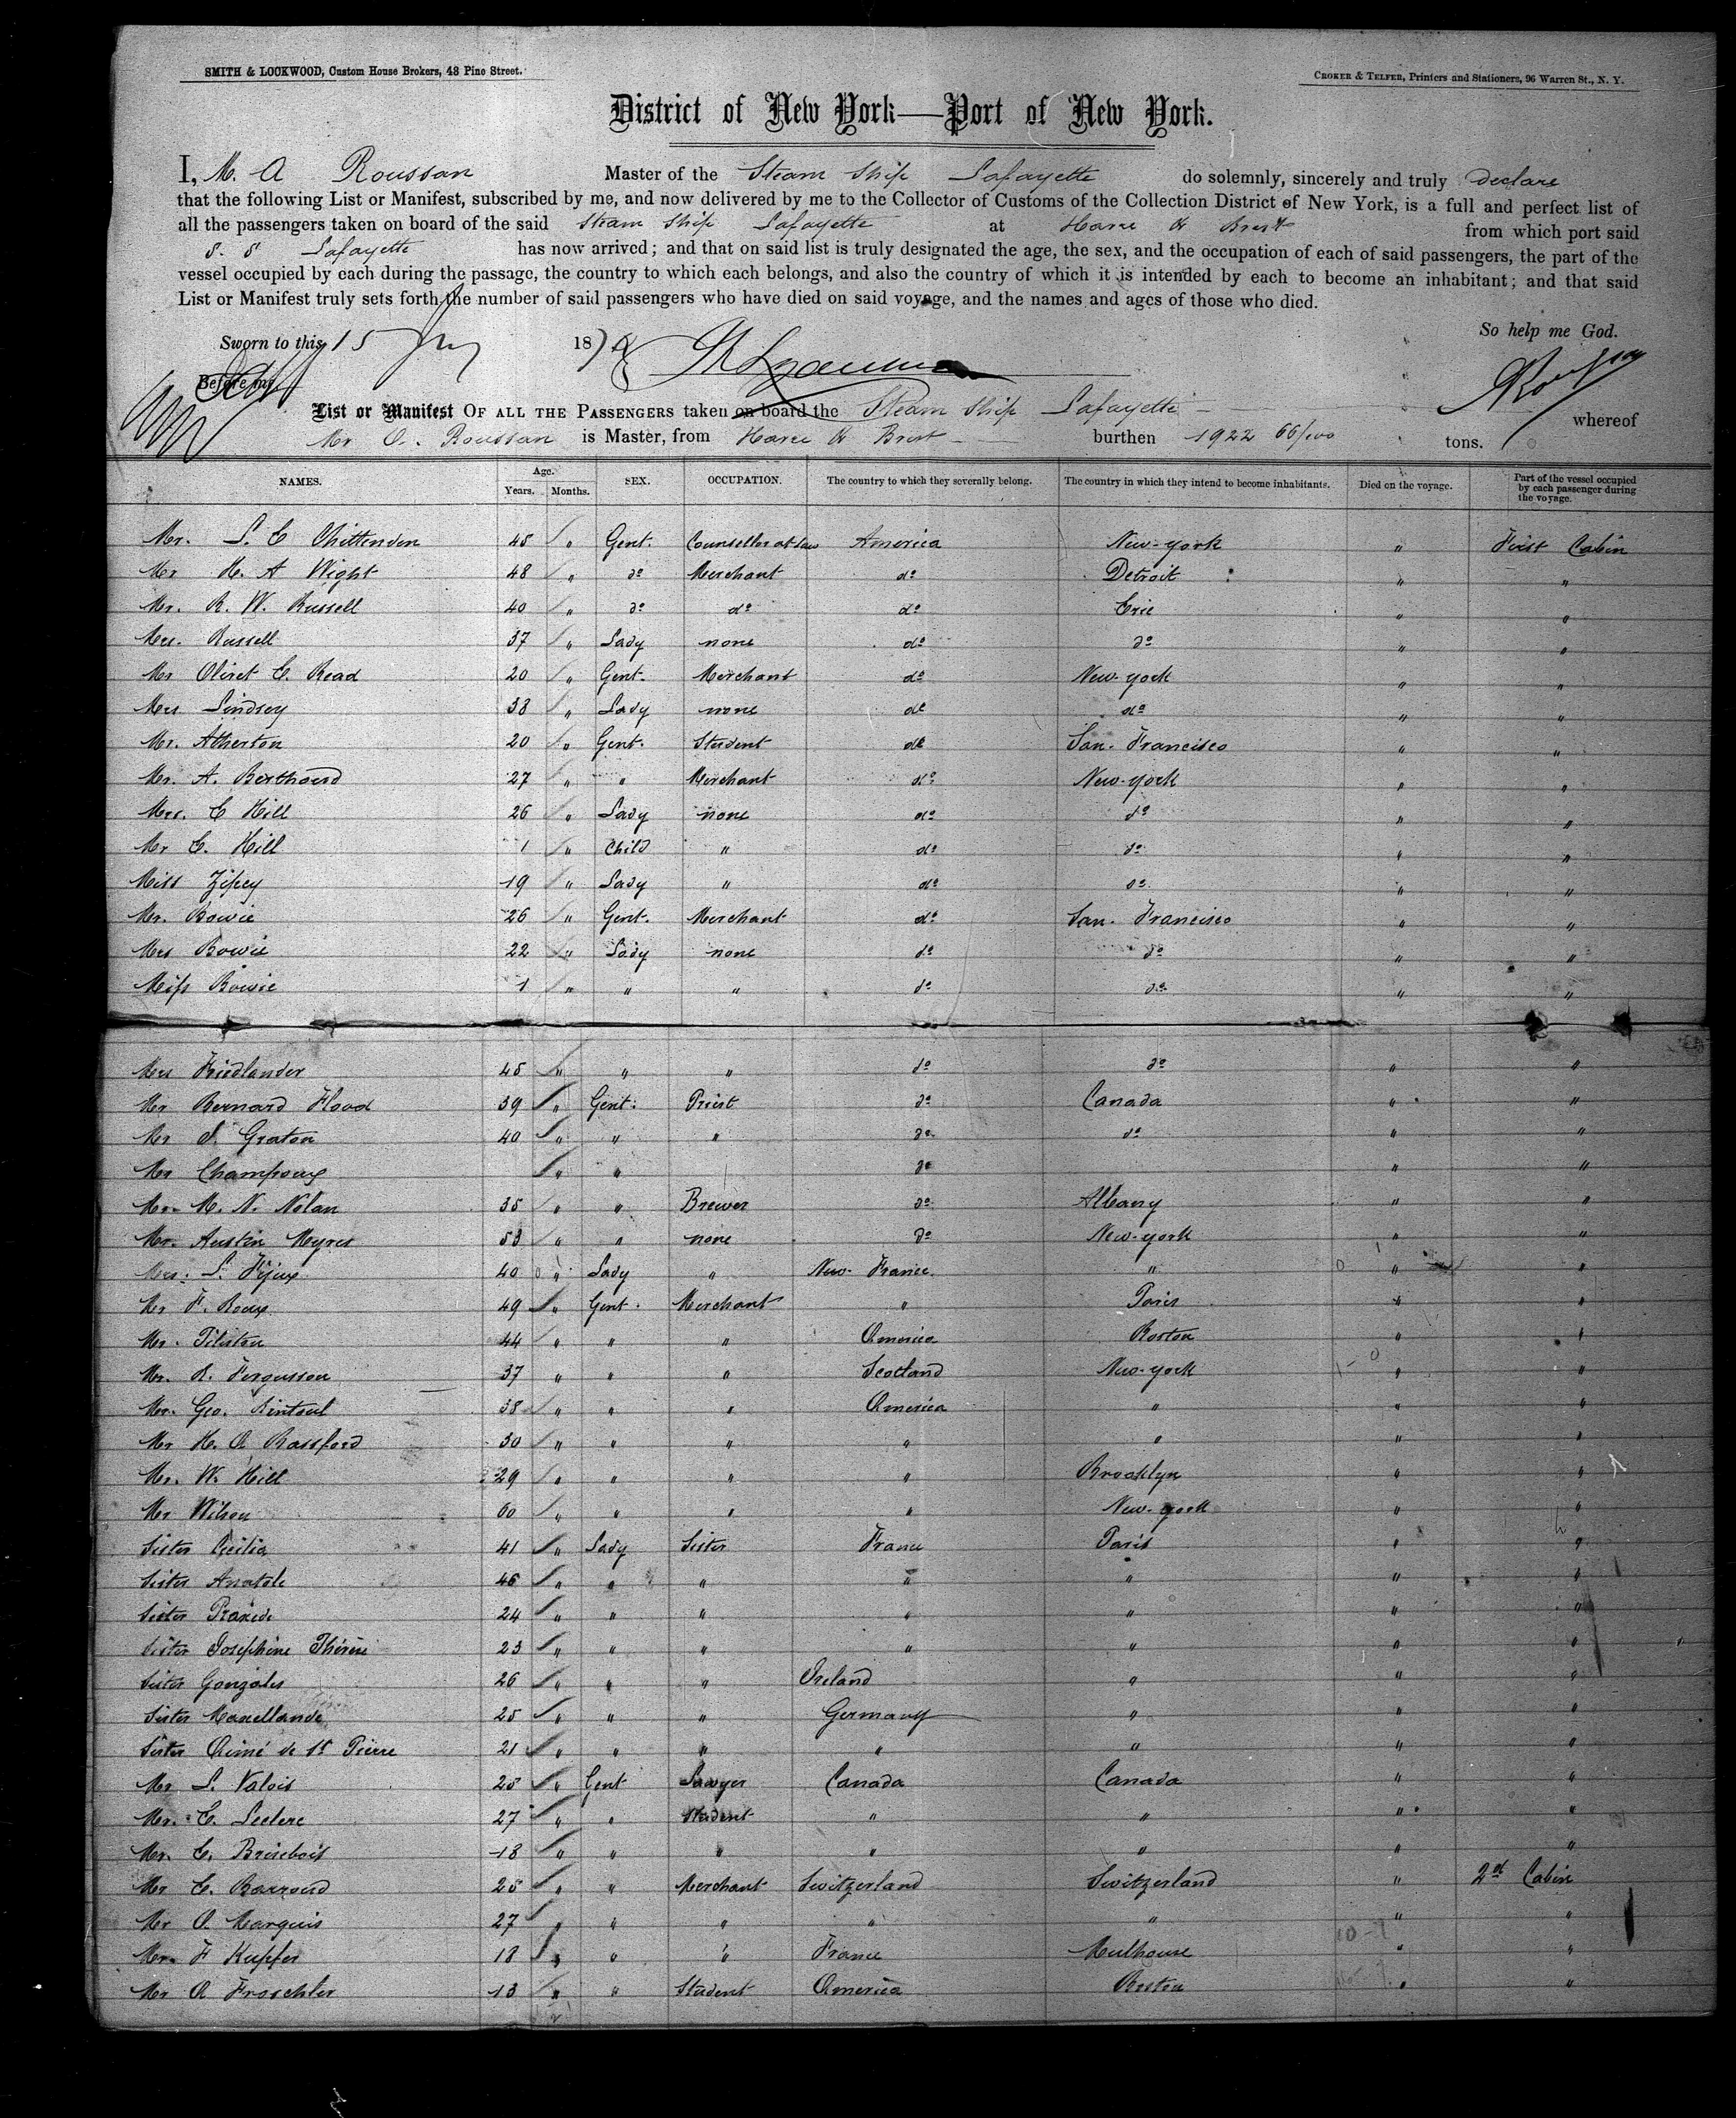 SMITH & LOCKWOOD, Custom House Brokers, 48 Pine Street.
CROKER & TELFER, Printers and Stationers, 96 Warren St., N. Y.
District of New York—Port of New York.
I, M. A Roussan Master of the Steam Ship Lafayette do solemnly, sincerely and truly declare
that the following List or Manifest, subscribed by me, and now delivered by me to the Collector of Customs of the Collection District of New York, is a full and perfect list of
all the passengers taken on board of the said Steam Ship Lafayette at Havre & Brest from which port said
S. S Lafayette has now arrived; and that on said list is truly designated the age, the sex, and the occupation of each of said passengers, the part of the
vessel occupied by each during the passage, the country to which each belongs, and also the country of which it is intended by each to become an inhabitant; and that said
List or Manifest truly sets forth the number of said passengers who have died on said voyage, and the names and ages of those who died.
So help me God.
Sworn to this 15 1870
Before me,
List or Manifest OF ALL THE PASSENGERS taken on board the Steam Ship Lafayette whereof
Mr A. Roussan is Master, from Havre & Brest burthen 1922 66/100 tons.
NAMES. Age. Years. Months. SEX. OCCUPATION. The country to which they severally belong. The country in which they intend to become inhabitants. Died on the voyage. Part of the vessel occupied by each passenger during the voyage.
Mr. L. E Chittenden 45 " Gent. Counsellor at law America New-york " First Cabin
Mr H. A Wight 48 " do Merchant do Detroit " "
Mr. R. W. Russell 40 " do do do Erie " "
Mrs. Russell 37 " Lady none do do " "
Mr Oliret C. Read 20 " Gent. Merchant do New-york " "
Mrs Lindsey 38 " Lady none do do " "
Mr. Atherton 20 " Gent. Student do San. Francisco " "
Mr. A. Berthoud 27 " " Merchant do New-york " "
Mrs. C Hill 26 " Lady none do do " "
Mr C. Hill 1 " Child " do do " "
Miss Zipcy 19 " Lady " do do " "
Mr. Bowie 26 " Gent. Merchant do San. Francisco " "
Mrs Bowie 22 " Lady none do do " "
Miss Bowie 1 " " " do do " "
Mrs Friedlander 45 " " " do do " "
Mr Bernard Flood 39 " Gent. Priest do Canada " "
Mr J. Graton 40 " " " do do " "
Mr Champoux " " do " "
Mr. M. N. Nolan 35 " " Brewer do Albany " "
Mr. Austin Myres 53 " " none do New-york " "
Mrs. L. Fijux 40 " Lady " New- France. " " "
Mr F. Roux 49 " Gent. Merchant " Paris " "
Mr. Tileston 44 " " " America Boston " "
Mr. R. Fergusson 37 " " " Scotland New-york " "
Mr. Geo. Rintoul 38 " " " America " " "
Mr H. A Bassford 30 " " " " " " "
Mr. W. Hill 29 " " " " Brooklyn " "
Mr Wilson 60 " " " " New-york " "
Sister Cecilia 41 " Lady Sister France Paris " "
Sister Anatole 46 " " " " " " "
Sister Praxede 24 " " " " " " "
Sister Josephine Thérèse 23 " " " " " " "
Sister Gonzales 26 " " " Ireland " " "
Sister Maxellande 25 " " " Germany " " "
Sister Aimé de St Pierre 21 " " " " " " "
Mr L. Valois 25 " Gent Lawyer Canada Canada " "
Mr. C. Leclerc 27 " " Student " " " "
Mr. C. Brisebois 18 " " " " " " "
Mr C. Barroud 25 " " Merchant Switzerland Switzerland " 2nd Cabin
Mr A. Marquis 27 " " " " " " "
Mr. F Kupfer 18 " " " France Mulhouse " "
Mr A Froschter 13 " " Student America Boston " "